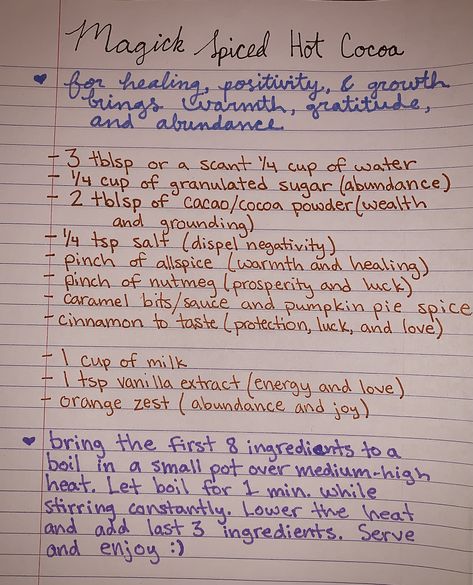 Magick Spiced Hot Cocoa
♥ for healing, positivity, & growth
brings warmth, gratitude,
and abundance
- 3 tblsp or a scant 1/4 cup of water
- 1/4 cup of granulated sugar (abundance)
- 2 tblsp of cacao/cocoa powder (wealth
and grounding)
- 1/4 tsp salt (dispel negativity)
- pinch of allspice (warmth and healing)
- pinch of nutmeg (prosperity and luck)
- caramel bits/sauce and pumpkin pie spice
- cinnamon to taste (protection, luck, and love)
- 1 cup of milk
- 1 tsp vanilla extract (energy and love)
- orange zest (abundance and joy)
♥ bring the first 8 ingredients to a
boil in a small pot over medium-high
heat. Let boil for 1 min. while
stirring constantly. Lower the heat
and add last 3 ingredients. Serve
and enjoy :)